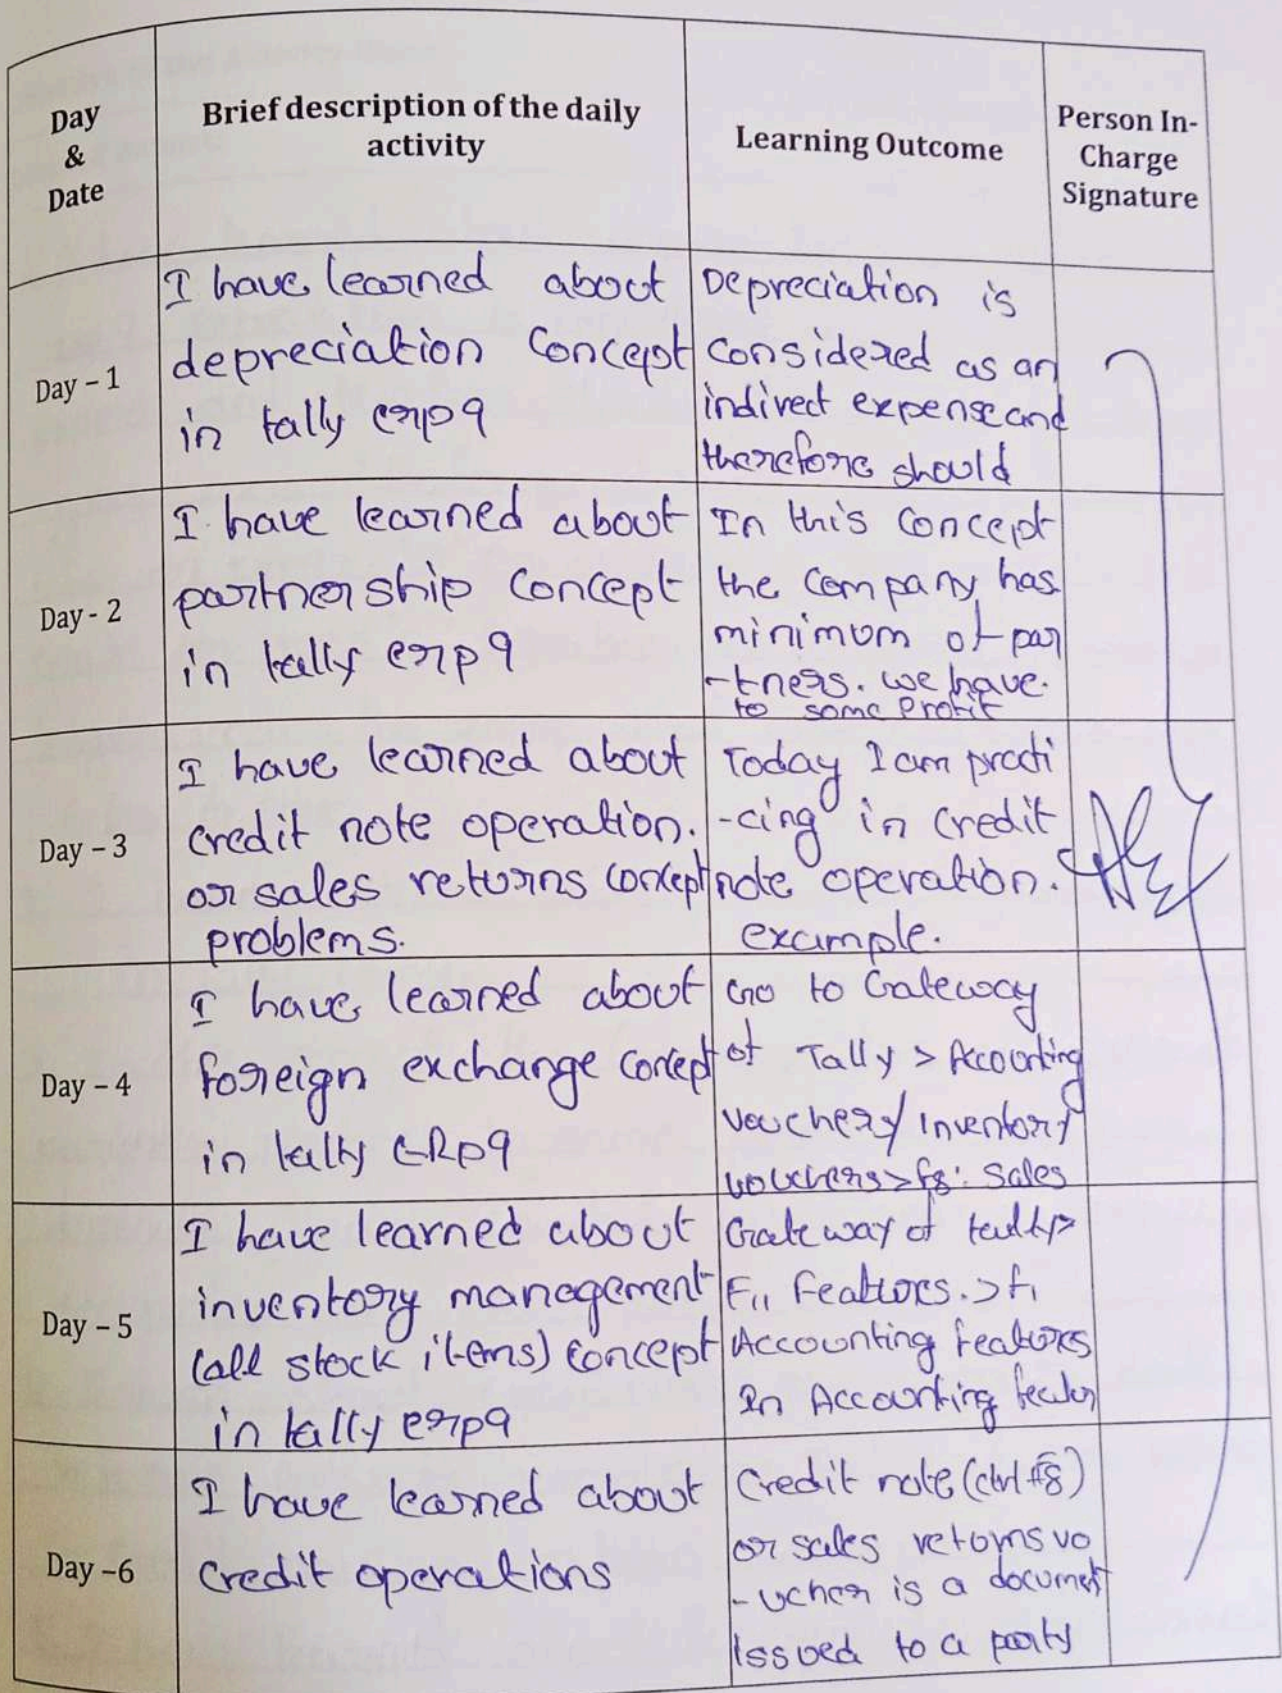 Day
&
Date
Brief description of the daily
activity
Learning Outcome
Person In-
Charge
Signature
Day – 1
I have learned about
depreciation concept
in tally erp9
Depreciation is
considered as an
indirect expense and
therefore should
Day - 2
I have learned about
partnership concept
in tally erp9
In this concept
the company has
minimum of par
-tners. we have.
to some profit
Day – 3
I have learned about
credit note operation.
or sales returns concept
problems.
Today I am practi
-cing in credit
note operation.
example.
Day – 4
I have learned about
foreign exchange concept
in tally ERP9
Go to Gateway
of Tally > Accounting
vouchers/ Inventory
vouchers > f8: Sales
Day – 5
I have learned about
inventory management
(all stock items) concept
in tally erp9
Gateway of tally>
F11 Features. > f1
Accounting features
In Accounting
Day –6
I have learned about
credit operations
Credit note (ctrl f8)
or sales returns vo
-ucher is a document
issued to a party